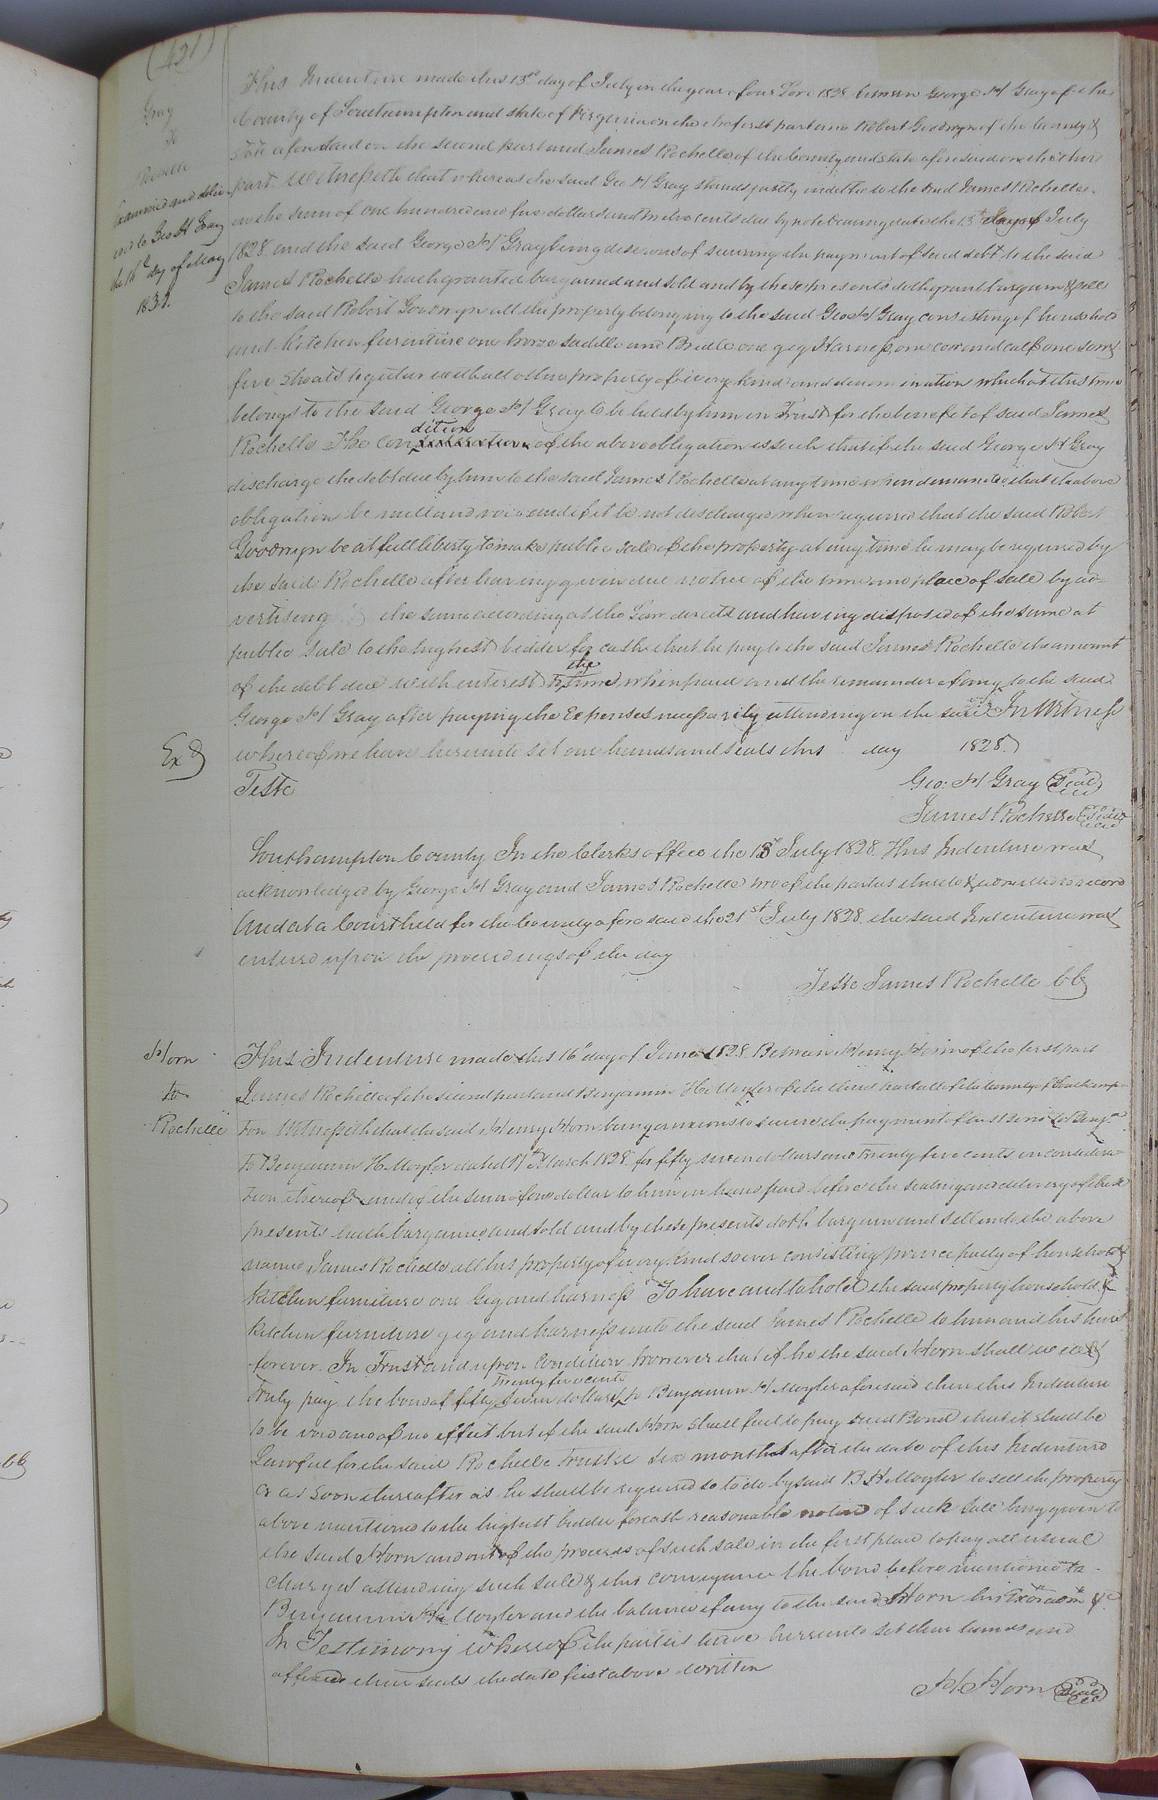 (421)
Gray
to
Rochelle
Examined and deliv
ered to Geo H Gray
the 16th day of May
1831.
This Indenture made this 13th day of July in the year of our Lord 1828 between George H Gray of the
County of Southampton and state of Virginia on the first part and Robert Goodwyn of the County &
State aforesaid on the second part and James Rochelle of the County and state aforesaid on the third
part Witnesseth that whereas the said Geo H Gray stands justly indebted to the said James Rochelle
in the sum of one hundred and five dollars and twelve cents due by note bearing date the 13th day of July
1828 and the said George H Gray being desirous of securing the payment of said debt to the said
James Rochelle hath granted bargained and sold and by these presents doth grant bargain & sell
to the said Robert Goodwyn all the property belonging to the said Geo H Gray consisting of household
and kitchen furniture one horse saddle and Bridle one gig Harness, one cow and calf one sow &
five Shoats together with all other property of every kind and denomination which at this time
belongs to the said George H Gray to be held by him in Trust for the benefit of said James
Rochelle The condition of the above obligation is such that if the said George H Gray
discharge the debt due by him to the said James Rochelle at any time when demanded that the above
obligation be null and void and if it be not discharged when required that the said Robert
Goodwyn be at full liberty to make public sale of the property at any time he may be required by
the said Rochelle after having given due notice of the time and place of sale by ad-
vertising the same according as the Law directs and having disposed of the same at
public sale to the highest bidder for cash that he pay to the said James Rochelle the amount
of the debt due with interest to the time when paid and the remainder if any to the said
George H Gray after paying the Expenses necessarily attending on the sale In Witness
whereof we have hereunto set our hands and seals this day 1828.
Exd
Teste
Geo: H Gray (Seal)
James Rochelle (Seal)
Southampton County In the Clerks office the 18th July 1828. This Indenture was
acknowledged by George H Gray and James Rochelle two of the parties thereto & admitted to record
And at a Court held for the County aforesaid the 21st July 1828 the said Indenture was
entered upon the proceedings of the day
Teste James Rochelle CC
Horn
to
Rochelle
This Indenture made this 16th day of June 1828 Between Henry Horn of the first part
James Rochelle of the second part and Benjamin H Moyler of the third part all of the County of Southamp-
ton Witnesseth that the said Henry Horn being anxious to secure the payment of
to Benjamin H Moyler dated 17th March 1828 for fifty seven dollars and twenty five cents in considera-
tion thereof and of the sum of one dollar to him in hand paid before the sealing and delivery of these
presents hath bargained and sold and by these presents doth bargain and sell unto the above
named James Rochelle all his property of every Kind soever consisting principally of household &
kitchen furniture one Gig and harness To have and to hold the said property household &
kitchen furniture gig and harness unto the said James Rochelle to him and his heirs
forever. In Trust and upon condition however that if he the said Horn shall well &
twenty five cents
truly pay the bond of fifty seven dollars to Benjamin H Moyler aforesaid then this Indenture
to be void and of no effect but if the said Horn shall fail to pay said Bond that it shall be
Lawful for the said Rochelle Trustee six months after the date of this Indenture
or as soon thereafter as he shall be required so to do by said B H Moyler to sell the property
above mentioned to the highest bidder for cash reasonable notice of such sale being given to
the said Horn and out of the proceeds of such sale in the first place to pay all usual
charges attending such sale & this conveyance the bond before mentioned to
Benjamin H Moyler and the balance if any to the said Horn his Exor admr &c
In Testimony whereof the parties have hereunto set their hands and
affixed their seals the date first above written
H Horn (Seal)